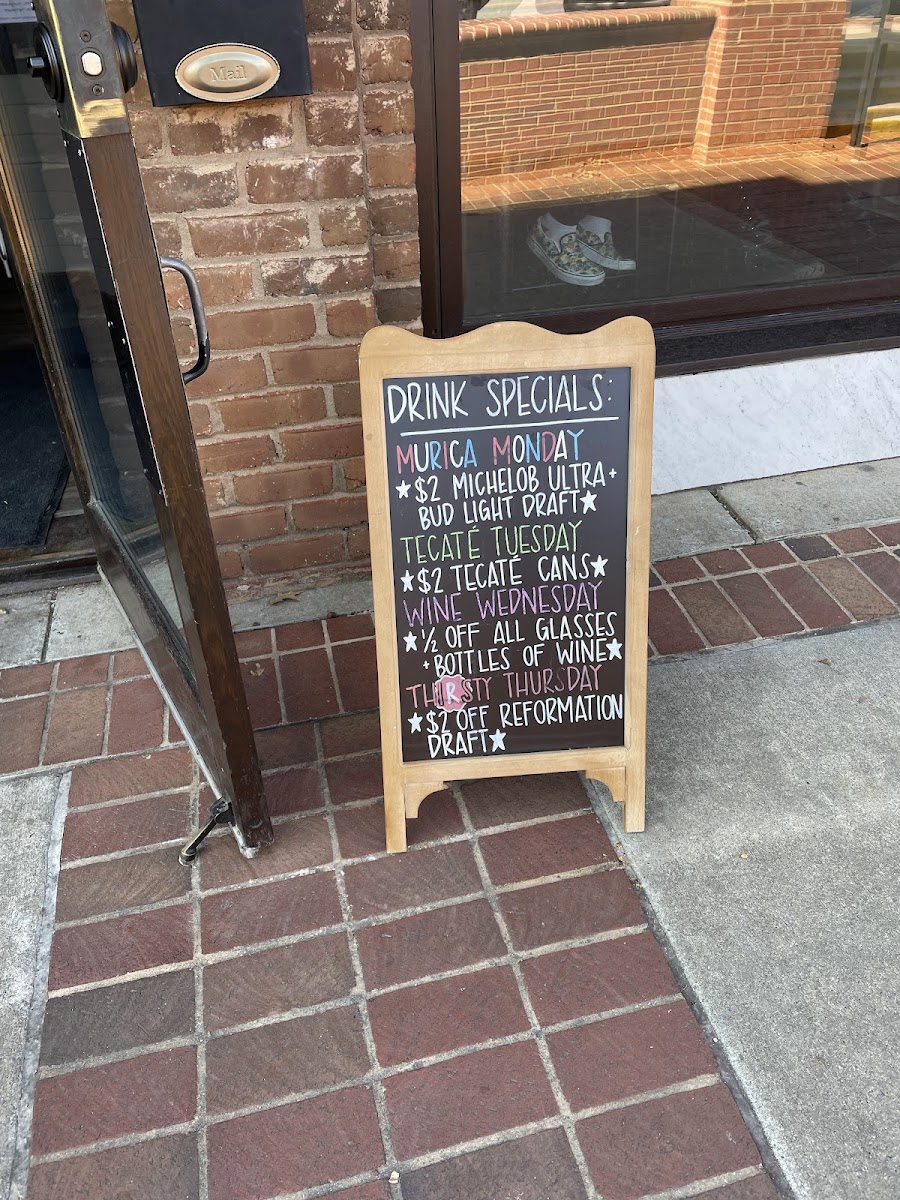 Mail
DRINK SPECIALS:
MURICA MONDAY
★$2 MICHELOB ULTRA+
BUD LIGHT DRAFT★
TECATÉ TUESDAY
★$2 TECATÉ CANS★
WINE WEDNESDAY
★½ OFF ALL GLASSES
+BOTTLES OF WINE★
THIRSTY THURSDAY
★$2 OFF REFORMATION
DRAFT★